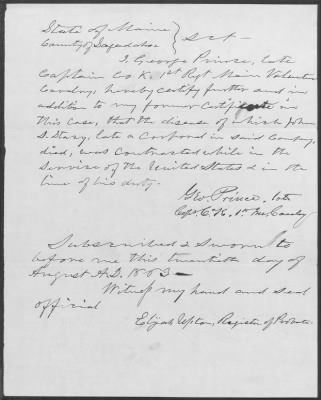 State of Maine
County of Sagadahoc } sct -
I, George Prince, late
Captain Co K. 1st Regt Maine Volunteer
Cavalry, hereby certify further and in
addition to my former Certificate in
this Case, that the disease of which John
S. late a Corporal in said Company,
died, was Contracted while in the
Service of the United States & in the
line of his duty.
Geo. Prince. late
Capt. C. K. 1st Me. Cavalry
Subscribed & Sworn to
before me this twentieth day of
August A.D. 1863 —
Witness my hand and seal
official
Elijah Upton, Register of Probate.